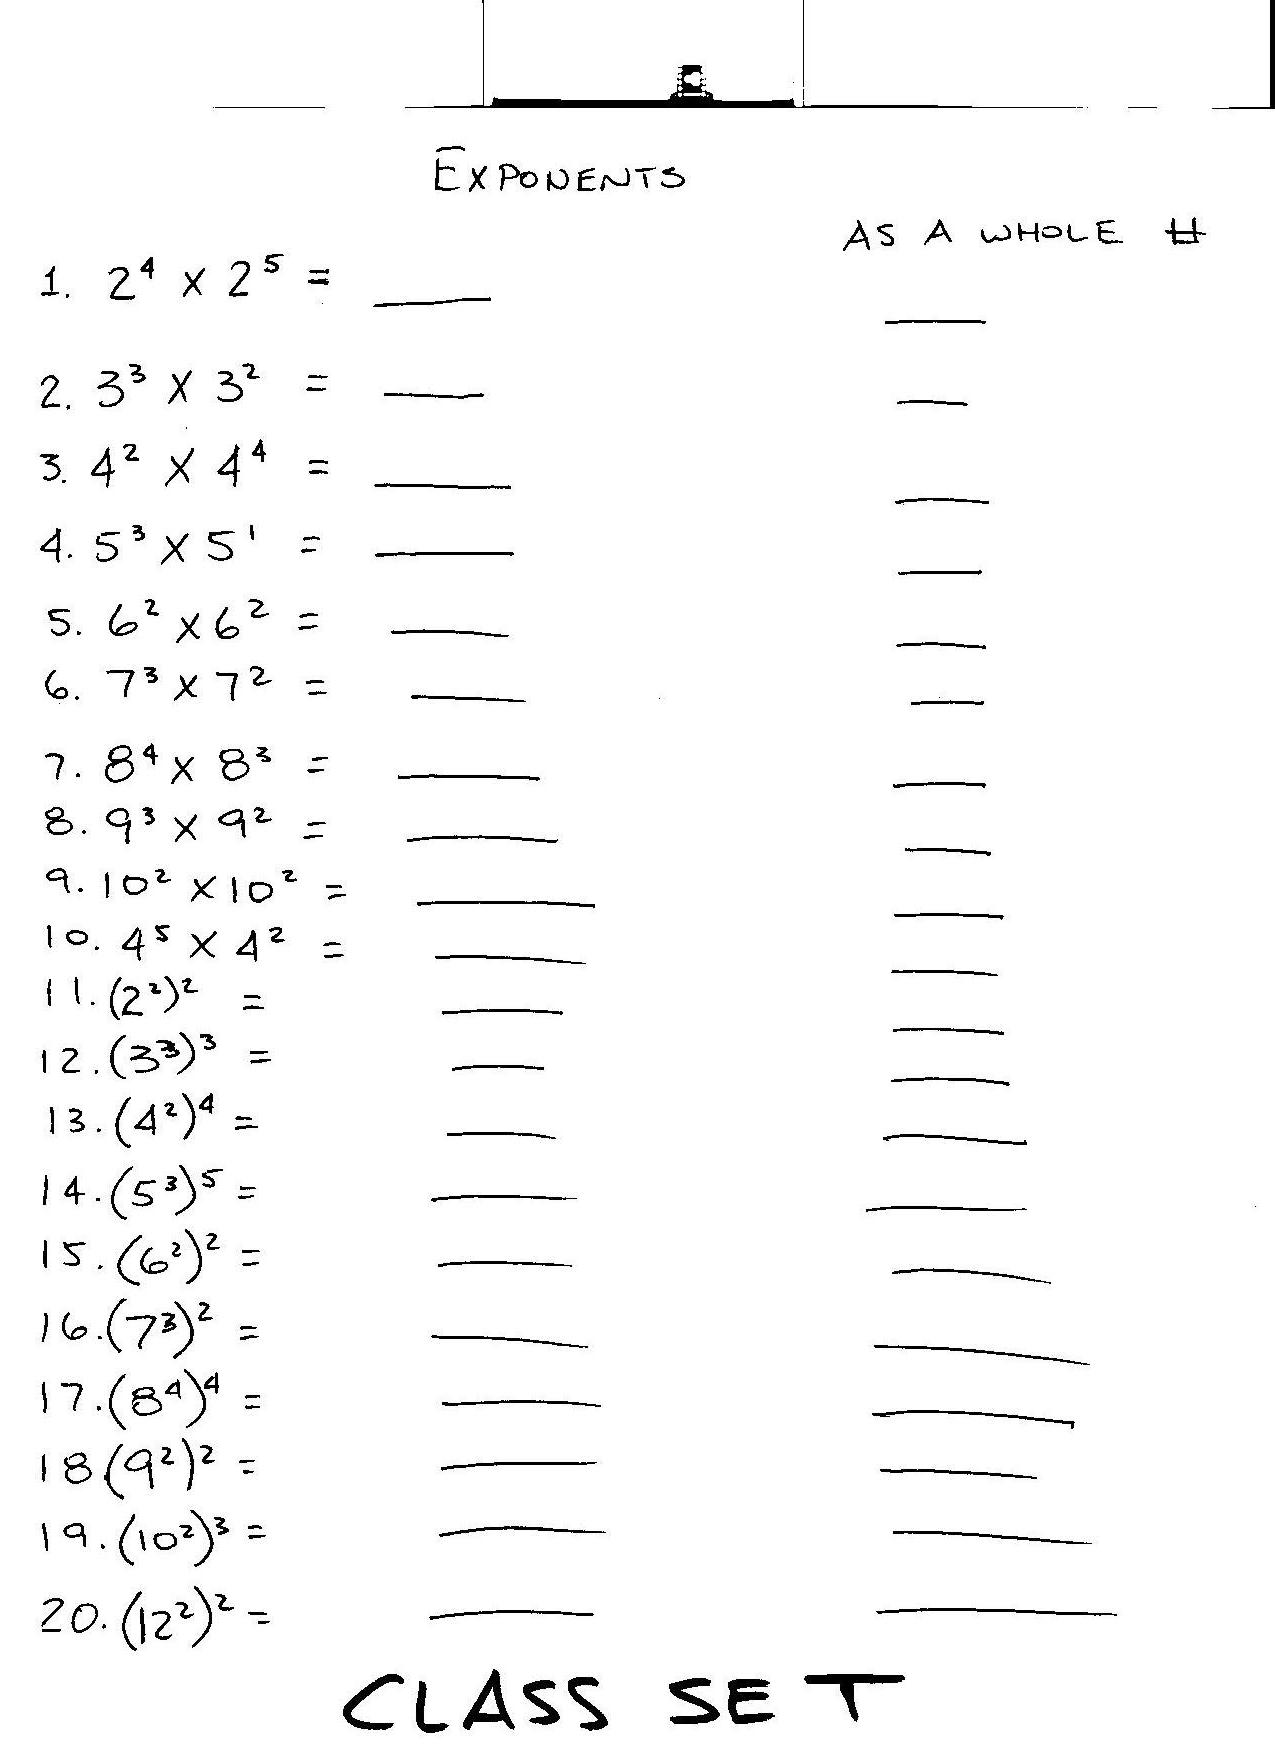 EXPONENTS
AS A WHOLE #
1. 2⁴ x 2⁵ = ____ ____
2. 3³ x 3² = ____ ____
3. 4² x 4⁴ = ____ ____
4. 5³ x 5¹ = ____ ____
5. 6² x 6² = ____ ____
6. 7³ x 7² = ____ ____
7. 8⁴ x 8³ = ____ ____
8. 9³ x 9² = ____ ____
9. 10² x 10² = ____ ____
10. 4⁵ x 4² = ____ ____
11. (2²)² = ____ ____
12. (3³)³ = ____ ____
13. (4²)⁴ = ____ ____
14. (5³)⁵ = ____ ____
15. (6²)² = ____ ____
16. (7³)² = ____ ____
17. (8⁴)⁴ = ____ ____
18 (9²)² = ____ ____
19. (10²)³ = ____ ____
20. (12²)² = ____ ____
CLASS SET